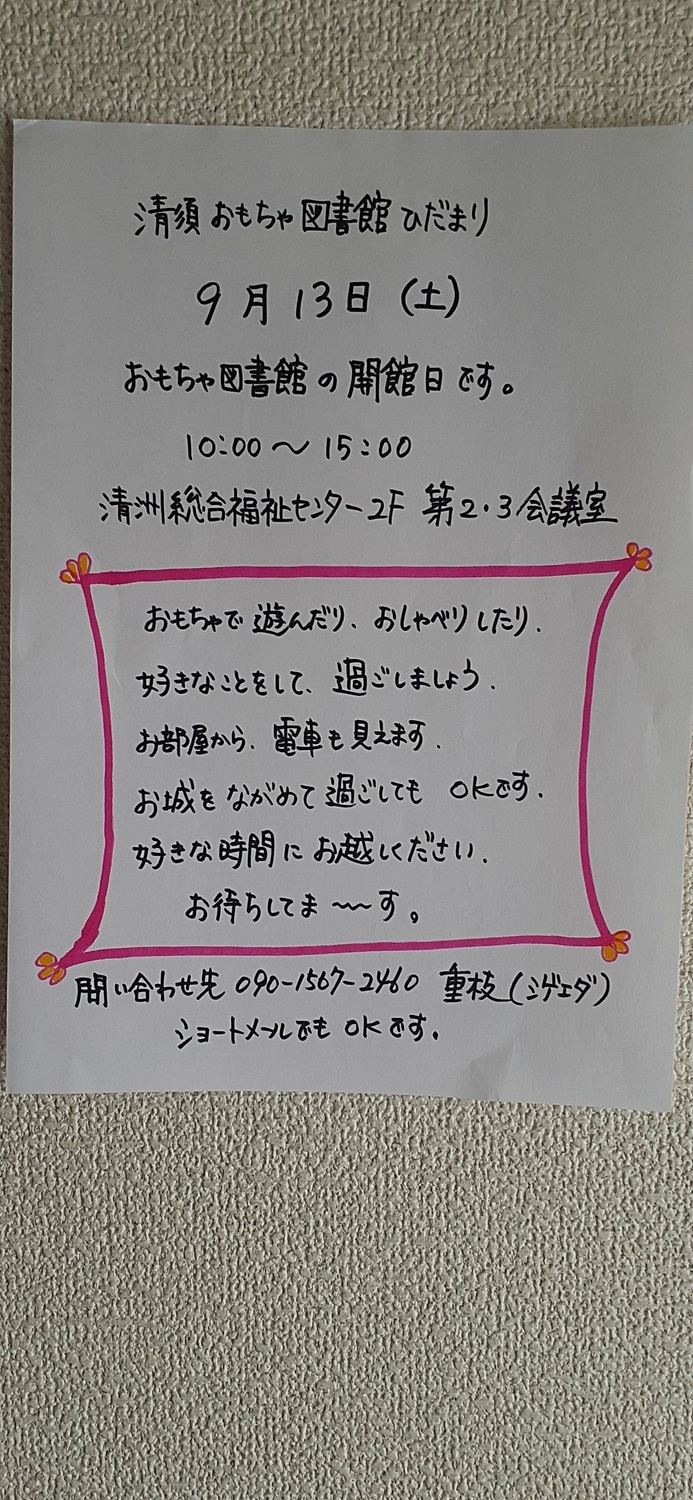 清須 おもちゃ図書館 ひだまり
9月13日(土)
おもちゃ図書館の開館日です。
10:00〜15:00
清洲総合福祉センター2F 第2・3会議室
おもちゃで遊んだり、おしゃべりしたり、
好きなことをして、過ごしましょう。
お部屋から、電車も見えます。
お城をながめて過ごしても OKです。
好きな時間にお越しください。
お待ちしてま〜〜す。
問い合わせ先 090-1567-2460 重枝(シゲエダ)
ショートメールでも OKです。